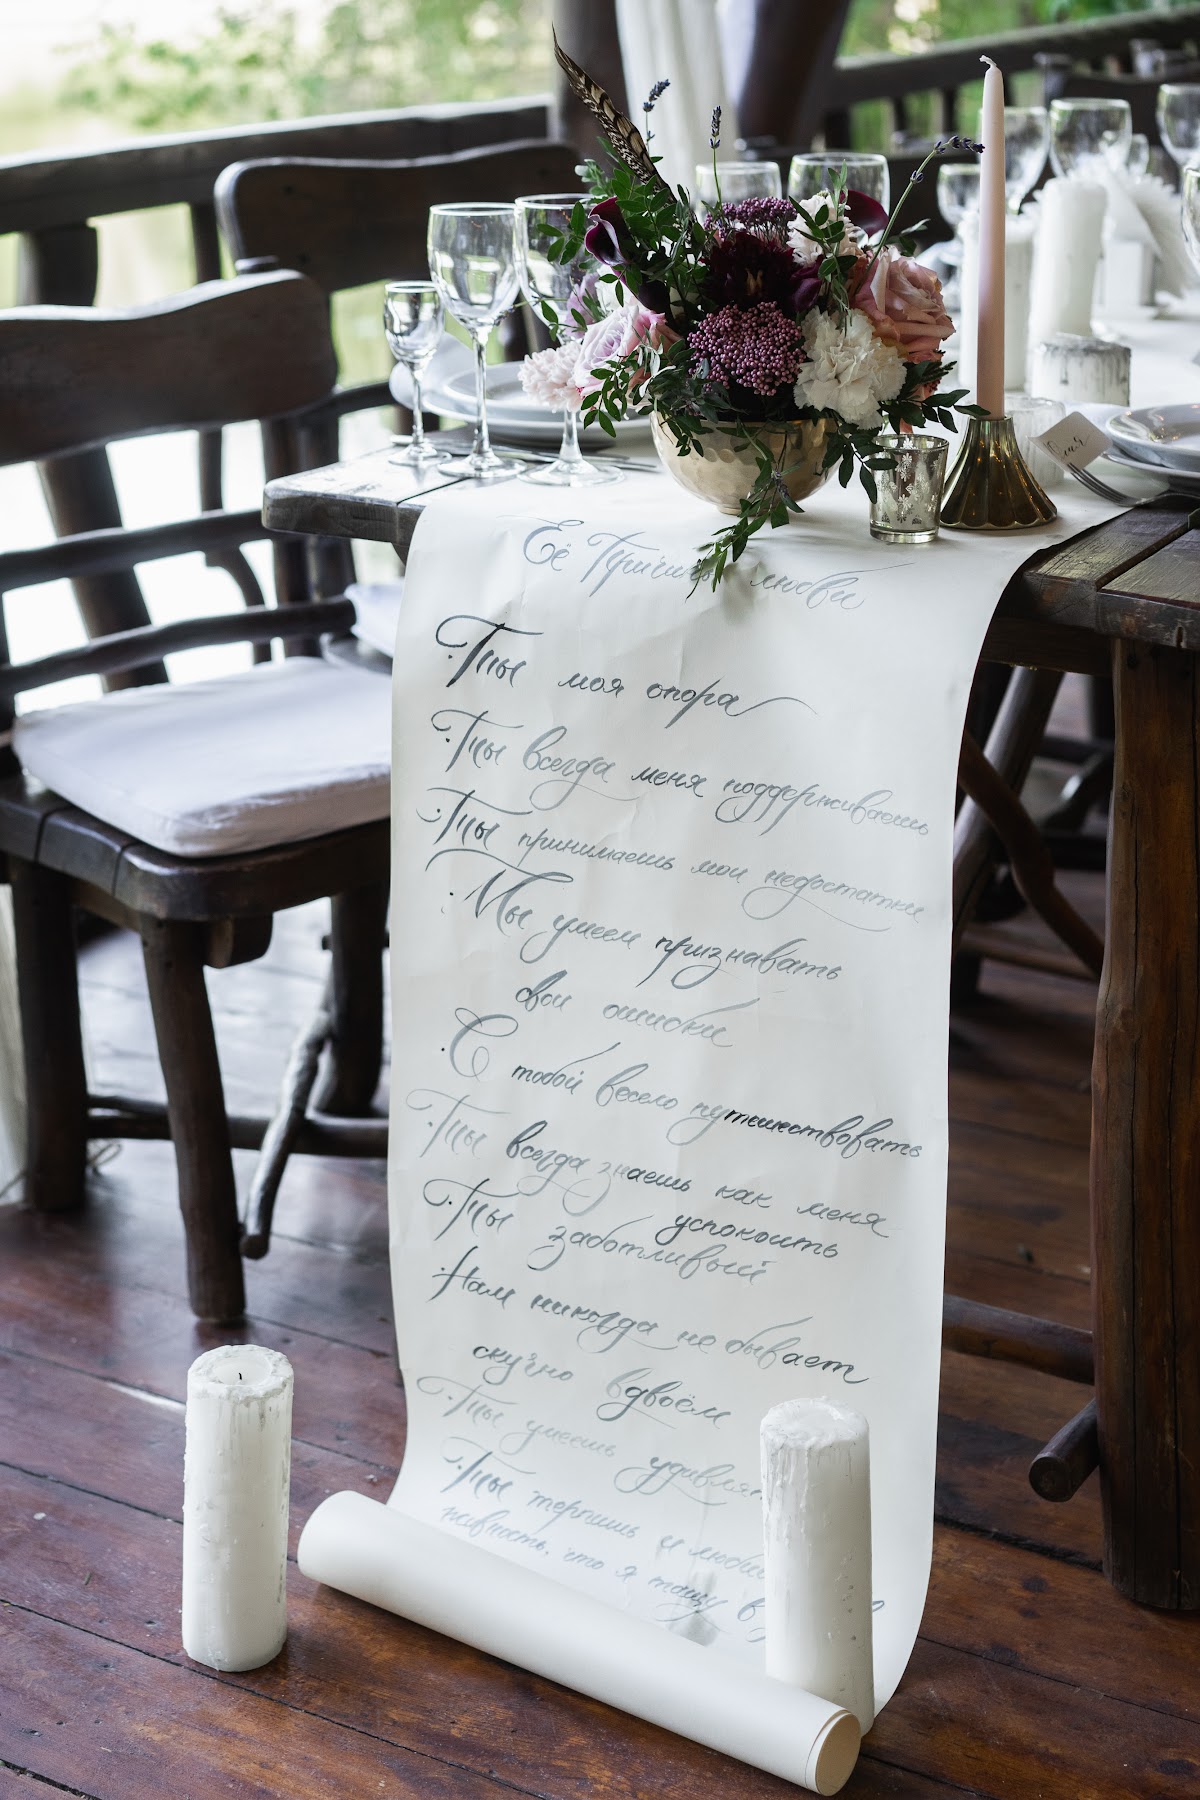 Её Причины любви
Ты моя опора
Ты всегда меня поддерживаешь
Ты принимаешь мои недостатки
Мы умеем признавать
свои ошибки
С тобой весело путшествовать
Ты всегда знаешь как меня
успокоить
Ты заботливый
Нам никогда не бывает
скучно вдвоём
Ты умеешь
Ты терпишь и
живность, что я тащу в
Оля